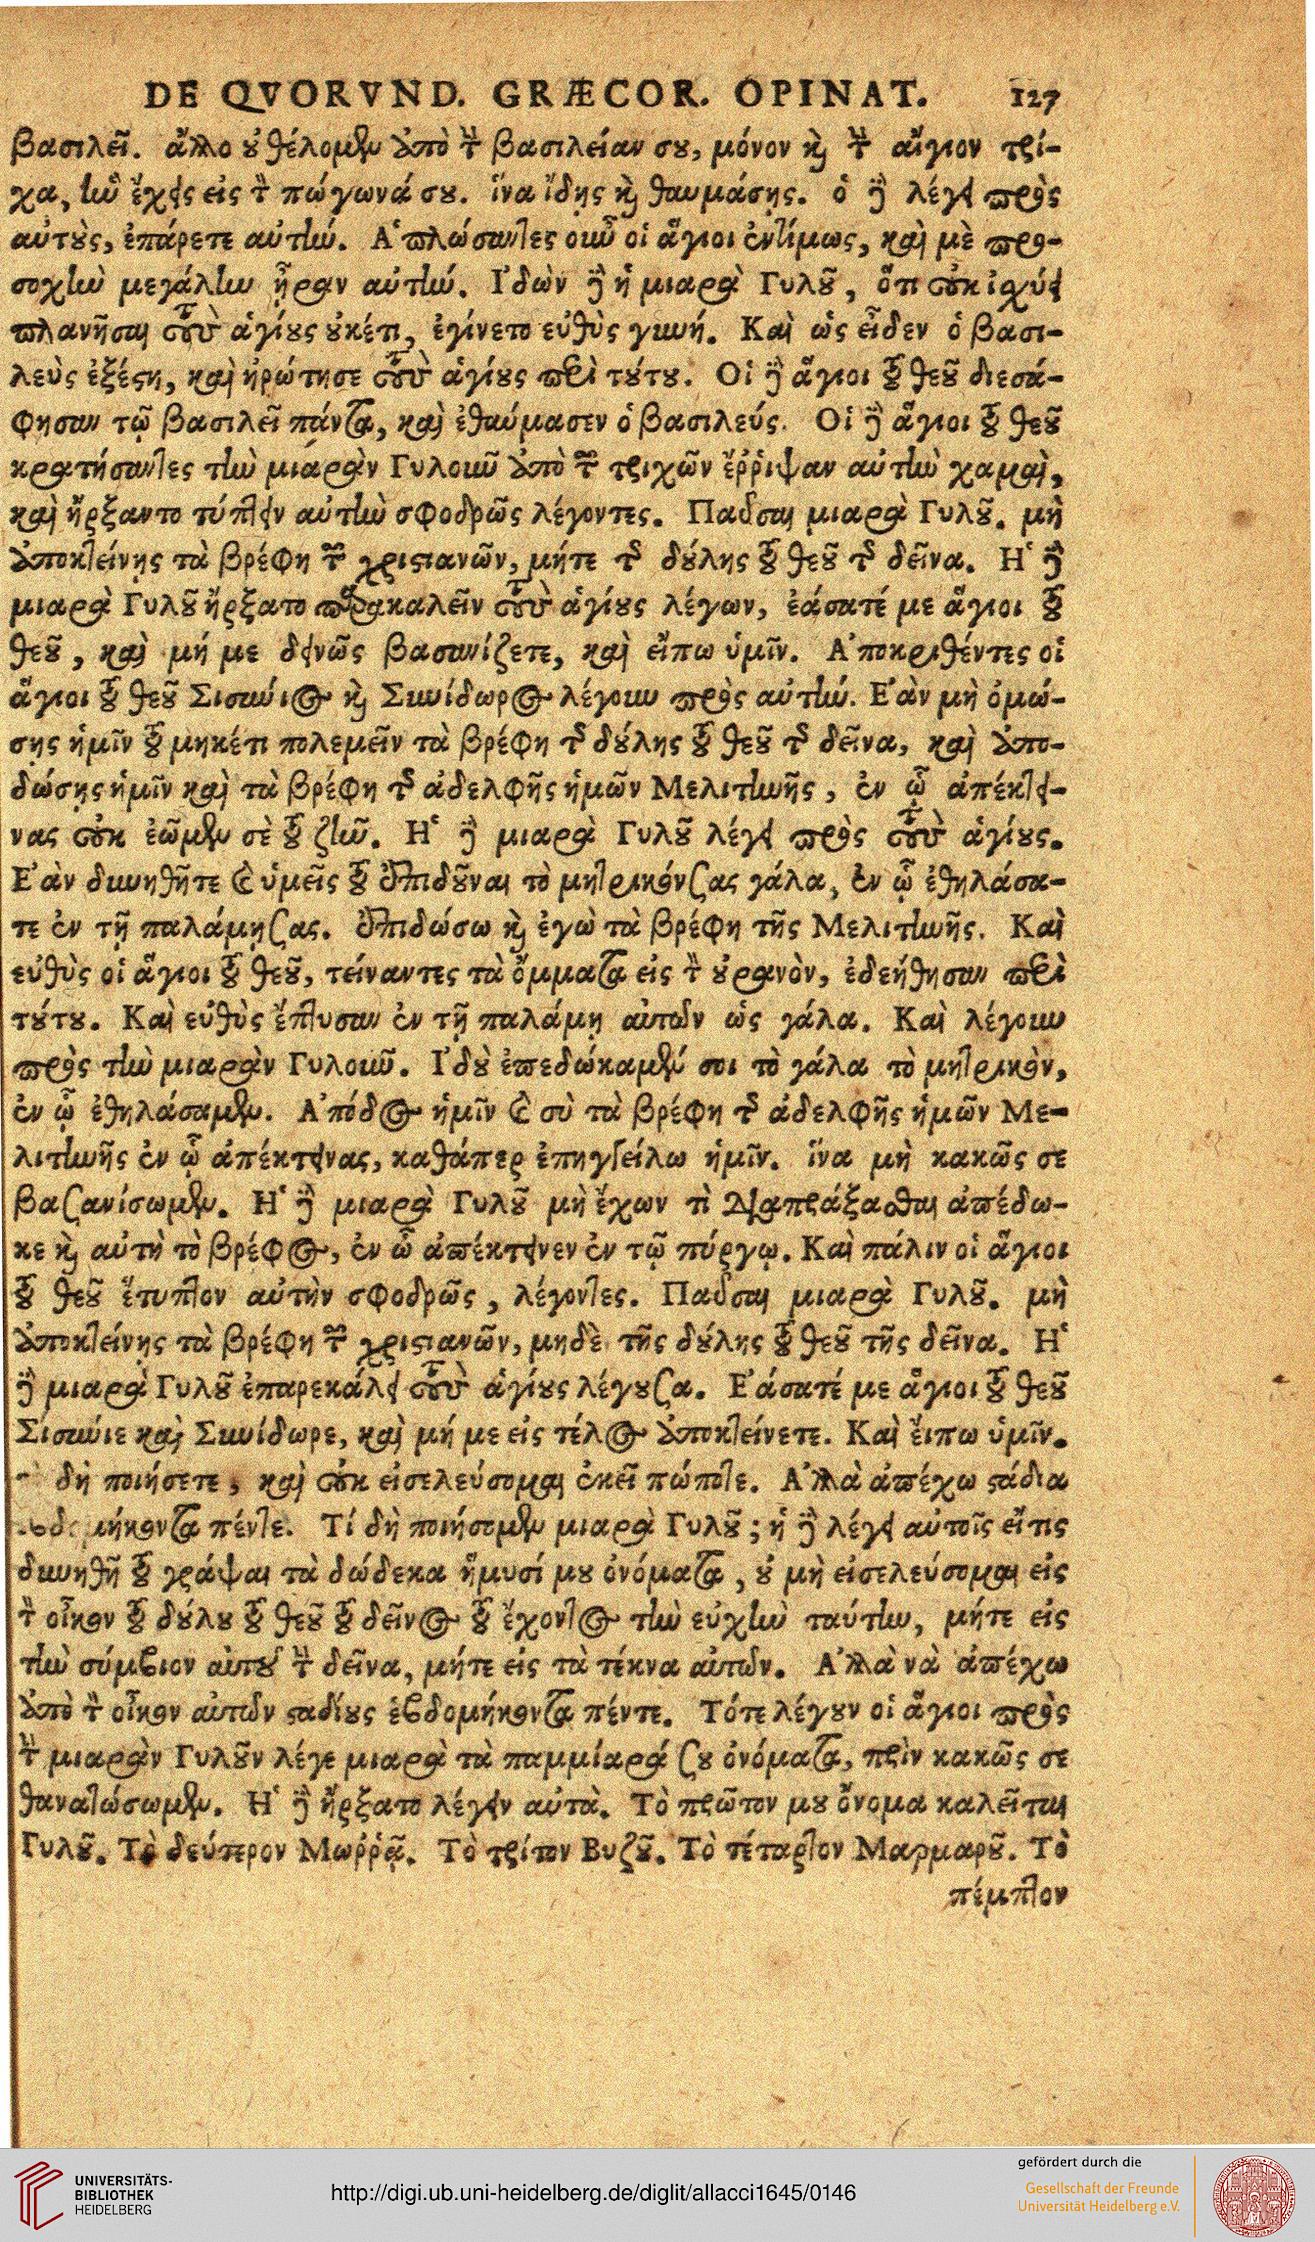 DE QVORVND. GRÆCOR. OPINAT. 127
βασιλεῖ. ἄλλο ȣ̓ θέλομεν ἀπὸ τ̀ βασιλείαν σȣ, μόνον κ̀ τ̀ αἴγιον τρί-
χα, ἣν ἔχεις εἰς τ̀ πώγωνά σȣ. ἵνα ἴδῃς κ̀ θαυμάσῃς. ὁ δὲ λέγει πρὸς
αὐτȣ̀ς, ἐπάρετε αὐτήν. Ἁπλώσαντες οὖν οἱ ἅγιοι ἐντίμως, καὶ μὲ προ-
σοχὴν μεγάλην ἦραν αὐτήν. Ἰδὼν δὲ ἡ μιαρὰ Γυλȣ͂, ὅτι οὐκ ἰχύει
πλανῆσαι τοὺς ἁγίȣς ȣ̓κέτι, ἐγίνετο εὐθὺς γυνή. Καὶ ὡς εἶδεν ὁ βασι-
λεὺς ἐξέϛη, καὶ ἠρώτησε τοὺς ἁγίȣς περὶ τȣ́τȣ. Οἱ δὲ ἅγιοι τȣ͂ θεȣ͂ διεσά-
φησαν τῷ βασιλεῖ πάντα, καὶ ἐθαύμασεν ὁ βασιλεύς. Οἱ δὲ ἅγιοι τȣ͂ θεȣ͂
κρατήσαντες τὴν μιαρὰν Γυλοῦν ἀπὸ τῶν τριχῶν ἔῤῥιψαν αὐτὴν χαμαὶ,
καὶ ἤρξαντο τύπτειν αὐτὴν σφοδρῶς λέγοντες. Παῦσαι μιαρὰ Γυλȣ͂. μὴ
ἀποκτείνῃς τὰ βρέφη τῶν χριϛιανῶν, μήτε τῆς δȣ́λης τȣ͂ θεȣ͂ τῆς δεῖνα. Ἡ δὲ
μιαρὰ Γυλȣ͂ ἤρξατο παρακαλεῖν τοὺς ἁγίȣς λέγων, ἐάσατέ με ἅγιοι τȣ͂
θεȣ͂, καὶ μή με δεινῶς βασανίζετε, καὶ εἴπω ὑμῖν. Ἀποκριθέντες οἱ
ἅγιοι τȣ͂ θεȣ͂ Σισώιος κ̀ Συνίδωρος λέγουν πρὸς αὐτήν. Ἐὰν μὴ ὀμώ-
σῃς ἡμῖν τȣ͂ μηκέτι πολεμεῖν τὰ βρέφη τῆς δȣ́λης τȣ͂ θεȣ͂ τῆς δεῖνα, καὶ ἀπο-
δώσῃς ἡμῖν καὶ τὰ βρέφη τῆς ἀδελφῆς ἡμῶν Μελιτηνῆς, ἐν ᾧ ἀπέκτει-
νας οὐκ ἐῶμεν σὲ τȣ͂ ζῆν. Ἡ δὲ μιαρὰ Γυλȣ͂ λέγει πρὸς τοὺς ἁγίȣς.
Ἐὰν δυνηθῆτε καὶ ὑμεῖς τȣ͂ ἐπιδȣ͂ναι τὸ μητρικόν σας γάλα, ἐν ᾧ ἐθηλάσα-
τε ἐν τῇ παλάμῃ σας. ἐπιδώσω κ̀ ἐγὼ τὰ βρέφη τῆς Μελιτηνῆς. Καὶ
εὐθὺς οἱ ἅγιοι τȣ͂ θεȣ͂, τείναντες τὰ ὄμματα εἰς τ̀ ȣ̓ρανὸν, ἐδεήθησαν περὶ
τȣ́τȣ. Καὶ εὐθὺς ἔπτυσαν ἐν τῇ παλάμῃ αὐτῶν ὡς γάλα. Καὶ λέγουν
πρὸς τὴν μιαρὰν Γυλοῦν. Ἰδȣ̀ ἐπεδώκαμέν σοι τὸ γάλα τὸ μητρικὸν,
ἐν ᾧ ἐθηλάσαμεν. Ἀπόδος ἡμῖν καὶ σὺ τὰ βρέφη τῆς ἀδελφῆς ἡμῶν Με-
λιτηνῆς ἐν ᾧ ἀπέκτεινας, καθάπερ ἐπηγγείλω ἡμῖν. ἵνα μὴ κακῶς σε
βασανίσωμεν. Ἡ δὲ μιαρὰ Γυλȣ͂ μὴ ἔχων τὶ διαπράξασθαι ἀπέδω-
κε κ̀ αὐτὴ τὸ βρέφος, ἐν ᾧ ἀπέκτεινεν ἐν τῷ πύργῳ. Καὶ πάλιν οἱ ἅγιοι
τȣ͂ θεȣ͂ ἔτυπτον αὐτὴν σφοδρῶς, λέγοντες. Παῦσαι μιαρὰ Γυλȣ͂. μὴ
ἀποκτείνῃς τὰ βρέφη τῶν χριϛιανῶν, μηδὲ τῆς δȣ́λης τȣ͂ θεȣ͂ τῆς δεῖνα. Ἡ
δὲ μιαρὰ Γυλȣ͂ ἐπαρεκάλει τοὺς ἁγίȣς λέγȣσα. Ἐάσατέ με ἅγιοι τȣ͂ θεȣ͂
Σισώιε καὶ Συνίδωρε, καὶ μή με εἰς τέλος ἀποκτείνετε. Καὶ εἴπω ὑμῖν.
δὴ ποιήσετε, καὶ οὐκ εἰσελεύσομαι ἐκεῖ πώποτε. Ἀλλὰ ἀπέχω ϛάδια
πέντε. Τί δὴ ποιήσομεν μιαρὰ Γυλȣ͂; ἡ δὲ λέγει αὐτοῖς εἴ τις
δυνηθῇ τȣ͂ γράψαι τὰ δώδεκα ἥμυσί μȣ ὀνόματα, ȣ̓ μὴ εἰσελεύσομαι εἰς
τ̀ οἶκον τȣ͂ δȣ́λȣ τȣ͂ θεȣ͂ τȣ͂ δεῖνος τȣ͂ ἔχοντος τὴν εὐχὴν ταύτην, μήτε εἰς
τὴν σύμβιον αὐτȣ͂ τ̀ δεῖνα, μήτε εἰς τὰ τέκνα αὐτῶν. Ἀλλὰ νὰ ἀπέχω
ἀπὸ τ̀ οἶκον αὐτῶν ϛαδίȣς ἑβδομήκοντα πέντε. Τότε λέγȣν οἱ ἅγιοι πρὸς
τ̀ μιαρὰν Γυλȣ͂ν λέγε μιαρὰ τὰ παμμίαρά σȣ ὀνόματα, πρὶν κακῶς σε
θανατώσωμεν. Ἡ δὲ ἤρξατο λέγειν αὐτὰ. Τὸ πρῶτον μȣ ὄνομα καλεῖται
Γυλȣ͂. Τὸ δεύτερον Μωῤῥᾷ. Τὸ τρίτον Βυζȣ͂. Τὸ τέταρτον Μαρμαρȣ͂. Τὸ
πέμπτον
UNIVERSITÄTS-
BIBLIOTHEK
HEIDELBERG
http://digi.ub.uni-heidelberg.de/diglit/allacci1645/0146
gefördert durch die
Gesellschaft der Freunde
Universität Heidelberg e.V.